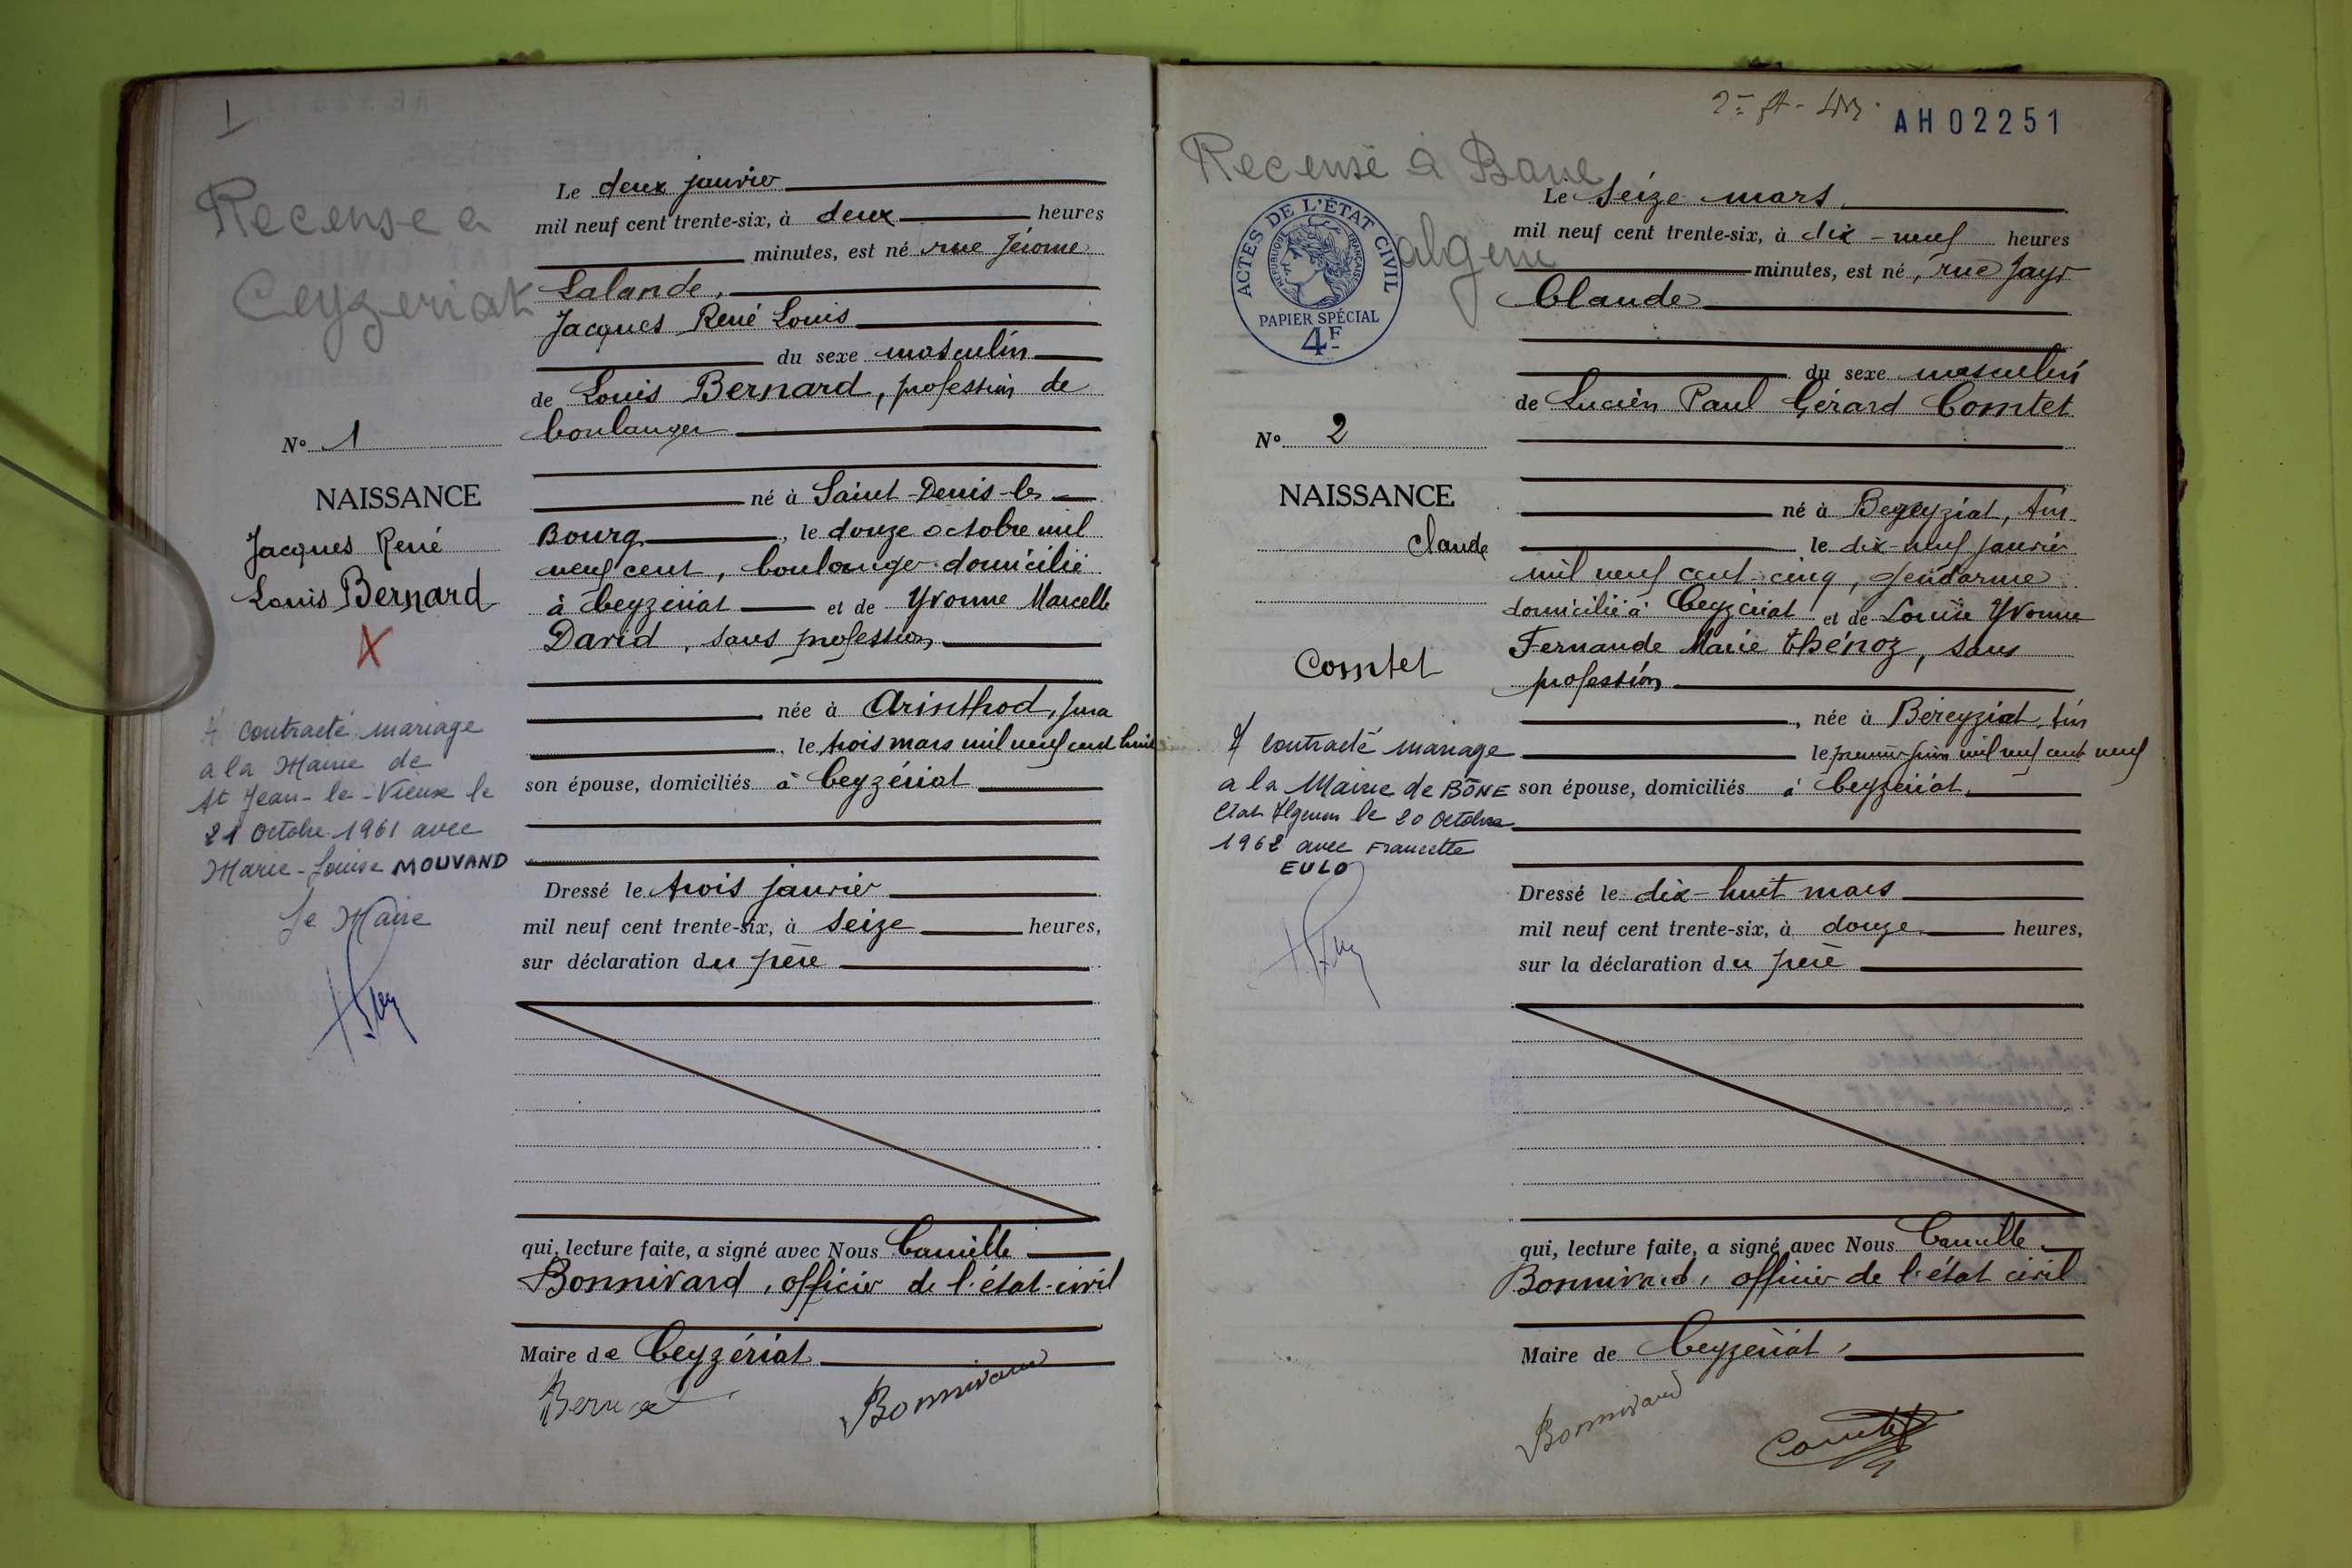 1
Recensé a
Ceyzeriat
Le deux janvier
mil neuf cent trente-six, à deux heures
minutes, est né rue Jérome
Lalande,
Jacques René Louis
du sexe masculin
de Louis Bernard, profession de
boulanger
N° 1
NAISSANCE
Jacques René
Louis Bernard
X
né à Saint-Denis-les
Bourg, le douze octobre mil
neuf cent, boulanger domicilié
à Ceyzériat et de Yvonne Marcelle
David, sans profession,
née à Arinthod, Jura
, le trois mars mil neuf cent huit
son épouse, domiciliés à Ceyzériat
A contracté mariage
a la Mairie de
St Jean-le-Vieux le
21 Octobre 1961 avec
Marie-Louise MOUVAND
Le Maire
Dressé le trois janvier
mil neuf cent trente-six, à seize heures,
sur déclaration du père
qui, lecture faite, a signé avec Nous Camille
Bonnivard, officier de l'état-civil
Maire de Ceyzériat
Bernard
Bonnivard
AH02251
Recensé à Bone
algerie
ACTES DE L'ÉTAT CIVIL
RÉPUBLIQUE FRANÇAISE
PAPIER SPÉCIAL
4F
Le Seize mars
mil neuf cent trente-six, à dix-neuf heures
minutes, est né, rue Jayr
Claude
du sexe masculin
de Lucien Paul Gérard Comtet
N° 2
NAISSANCE
Claude
Comtet
né à Béreyziat, Ain
le dix-neuf janvier
mil neuf cent cinq, gendarme
domicilié à Ceyzériat et de Louise Yvonne
Fernande Marie Thénoz, sans
profession
, née à Béreyziat, Ain
le premier juin mil neuf cent neuf
son épouse, domiciliés à Ceyzériat,
A contracté mariage
a la Mairie de BÔNE
Etat Algerien le 20 Octobre
1962 avec Francette
EULO
Dressé le dix-huit mars
mil neuf cent trente-six, à douze heures,
sur la déclaration du père
qui, lecture faite, a signé avec Nous Camille
Bonnivard, officier de l'état civil
Maire de Ceyzériat,
Bonnivard
Comtet